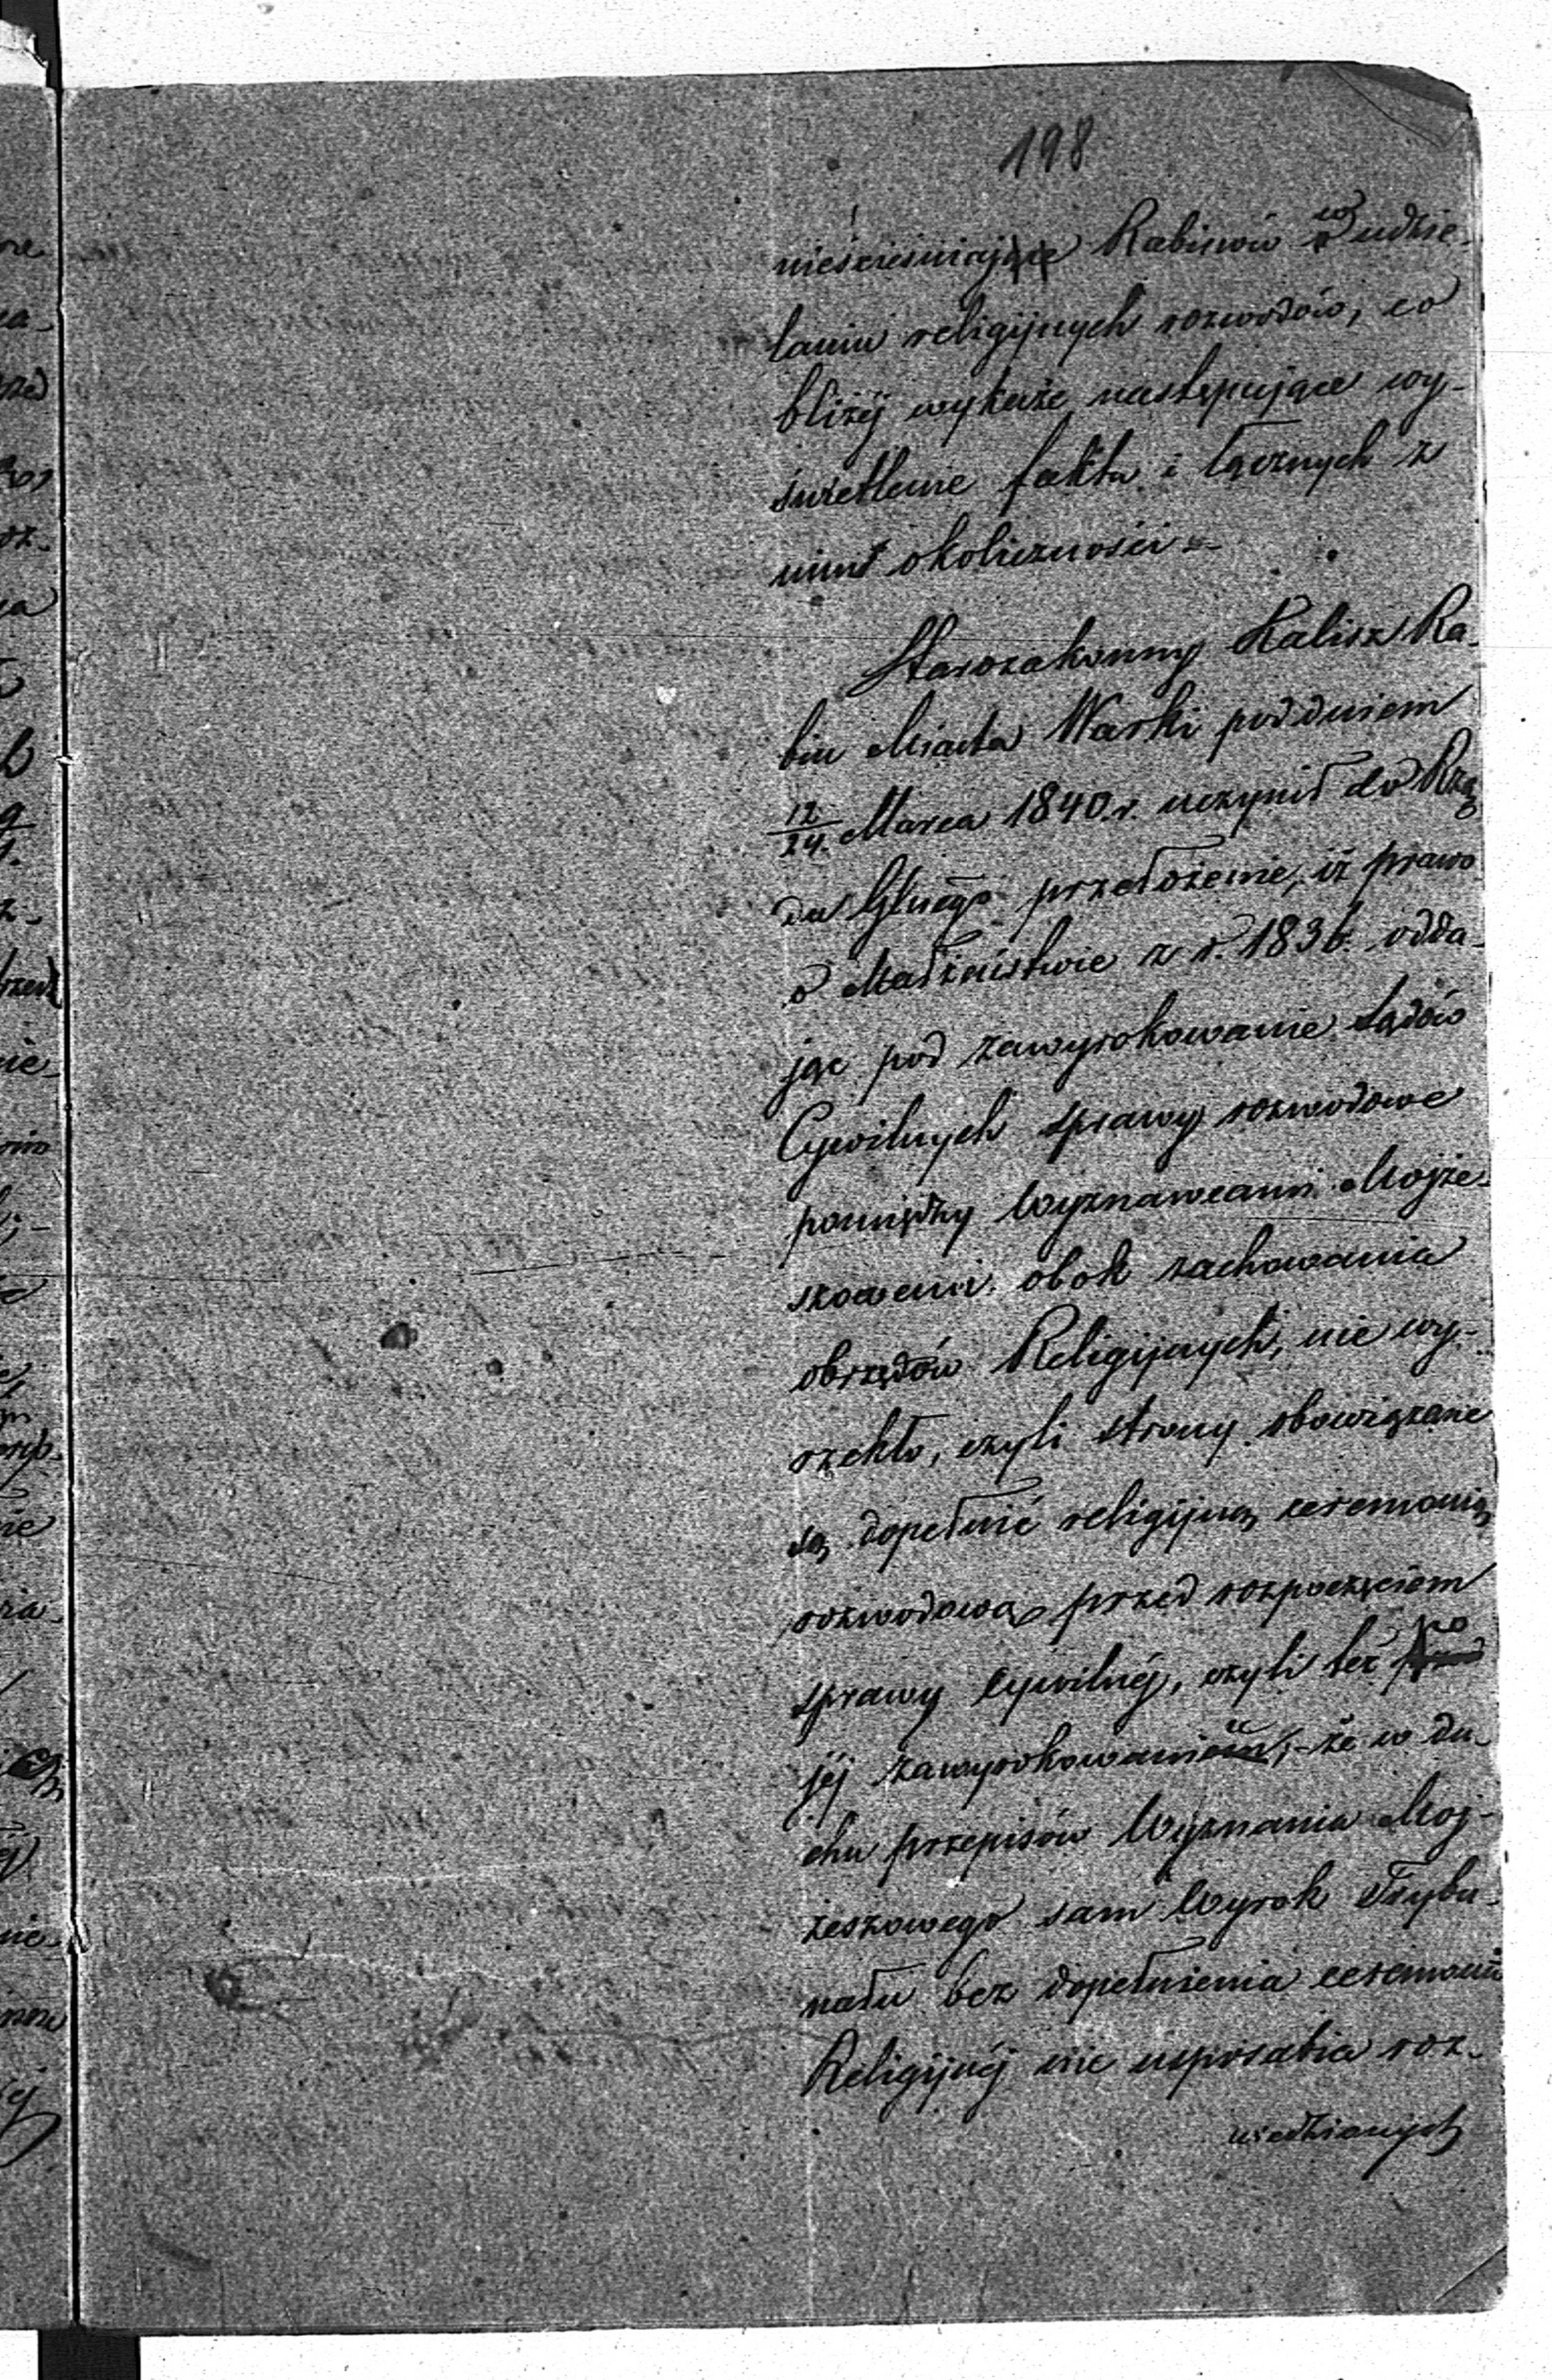 198
nieścieśniające Rabinów w udzie-
laniu religijnych rozwodów, co
bliżéj wykaże następujące wy-
świetlenie faktu i łącznych z
nim okoliczności -
Starozakonny Kalisz Ra-
bin Miasta Warki pod dniem
12/24. Marca 1840. r. uczynił do Rzą
du Głnego przełożenie, iż prawo
o Małżeństwie z r. 1836. odda-
jąc pod zawyrokowanie Sądów
Cywilnych sprawy rozwodowe
pomiędzy Wyznawcami Mojże-
szowemi obok zachowania
obrzędów Religijnych, nie wy-
rzekło, czyli strony obowiązane
są dopełnić religijną ceremonią
rozwodową przed rozpoczęciem
sprawy Cywilnéj, czyli też po
jéj zawyrokowaniu, - że w du-
chu przepisów Wyznania Moj-
żeszowego sam Wyrok Trybu-
nału bez dopełnienia ceremonii
Religijnéj nie usposabia roz-
wiedzionych